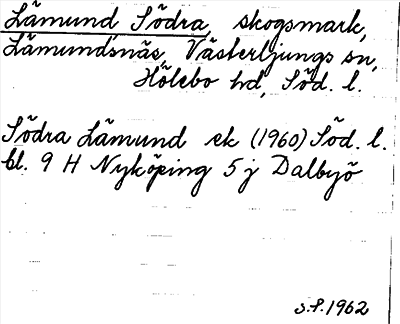 Lämund Södra, skogsmark,
Lämundsnäs, Västerljungs sn,
Hölebo hd, Söd. l.
Södra Lämund ek (1960) Söd. l.
bl. 9 H Nyköping 5 j Dalbyö
S.P. 1962